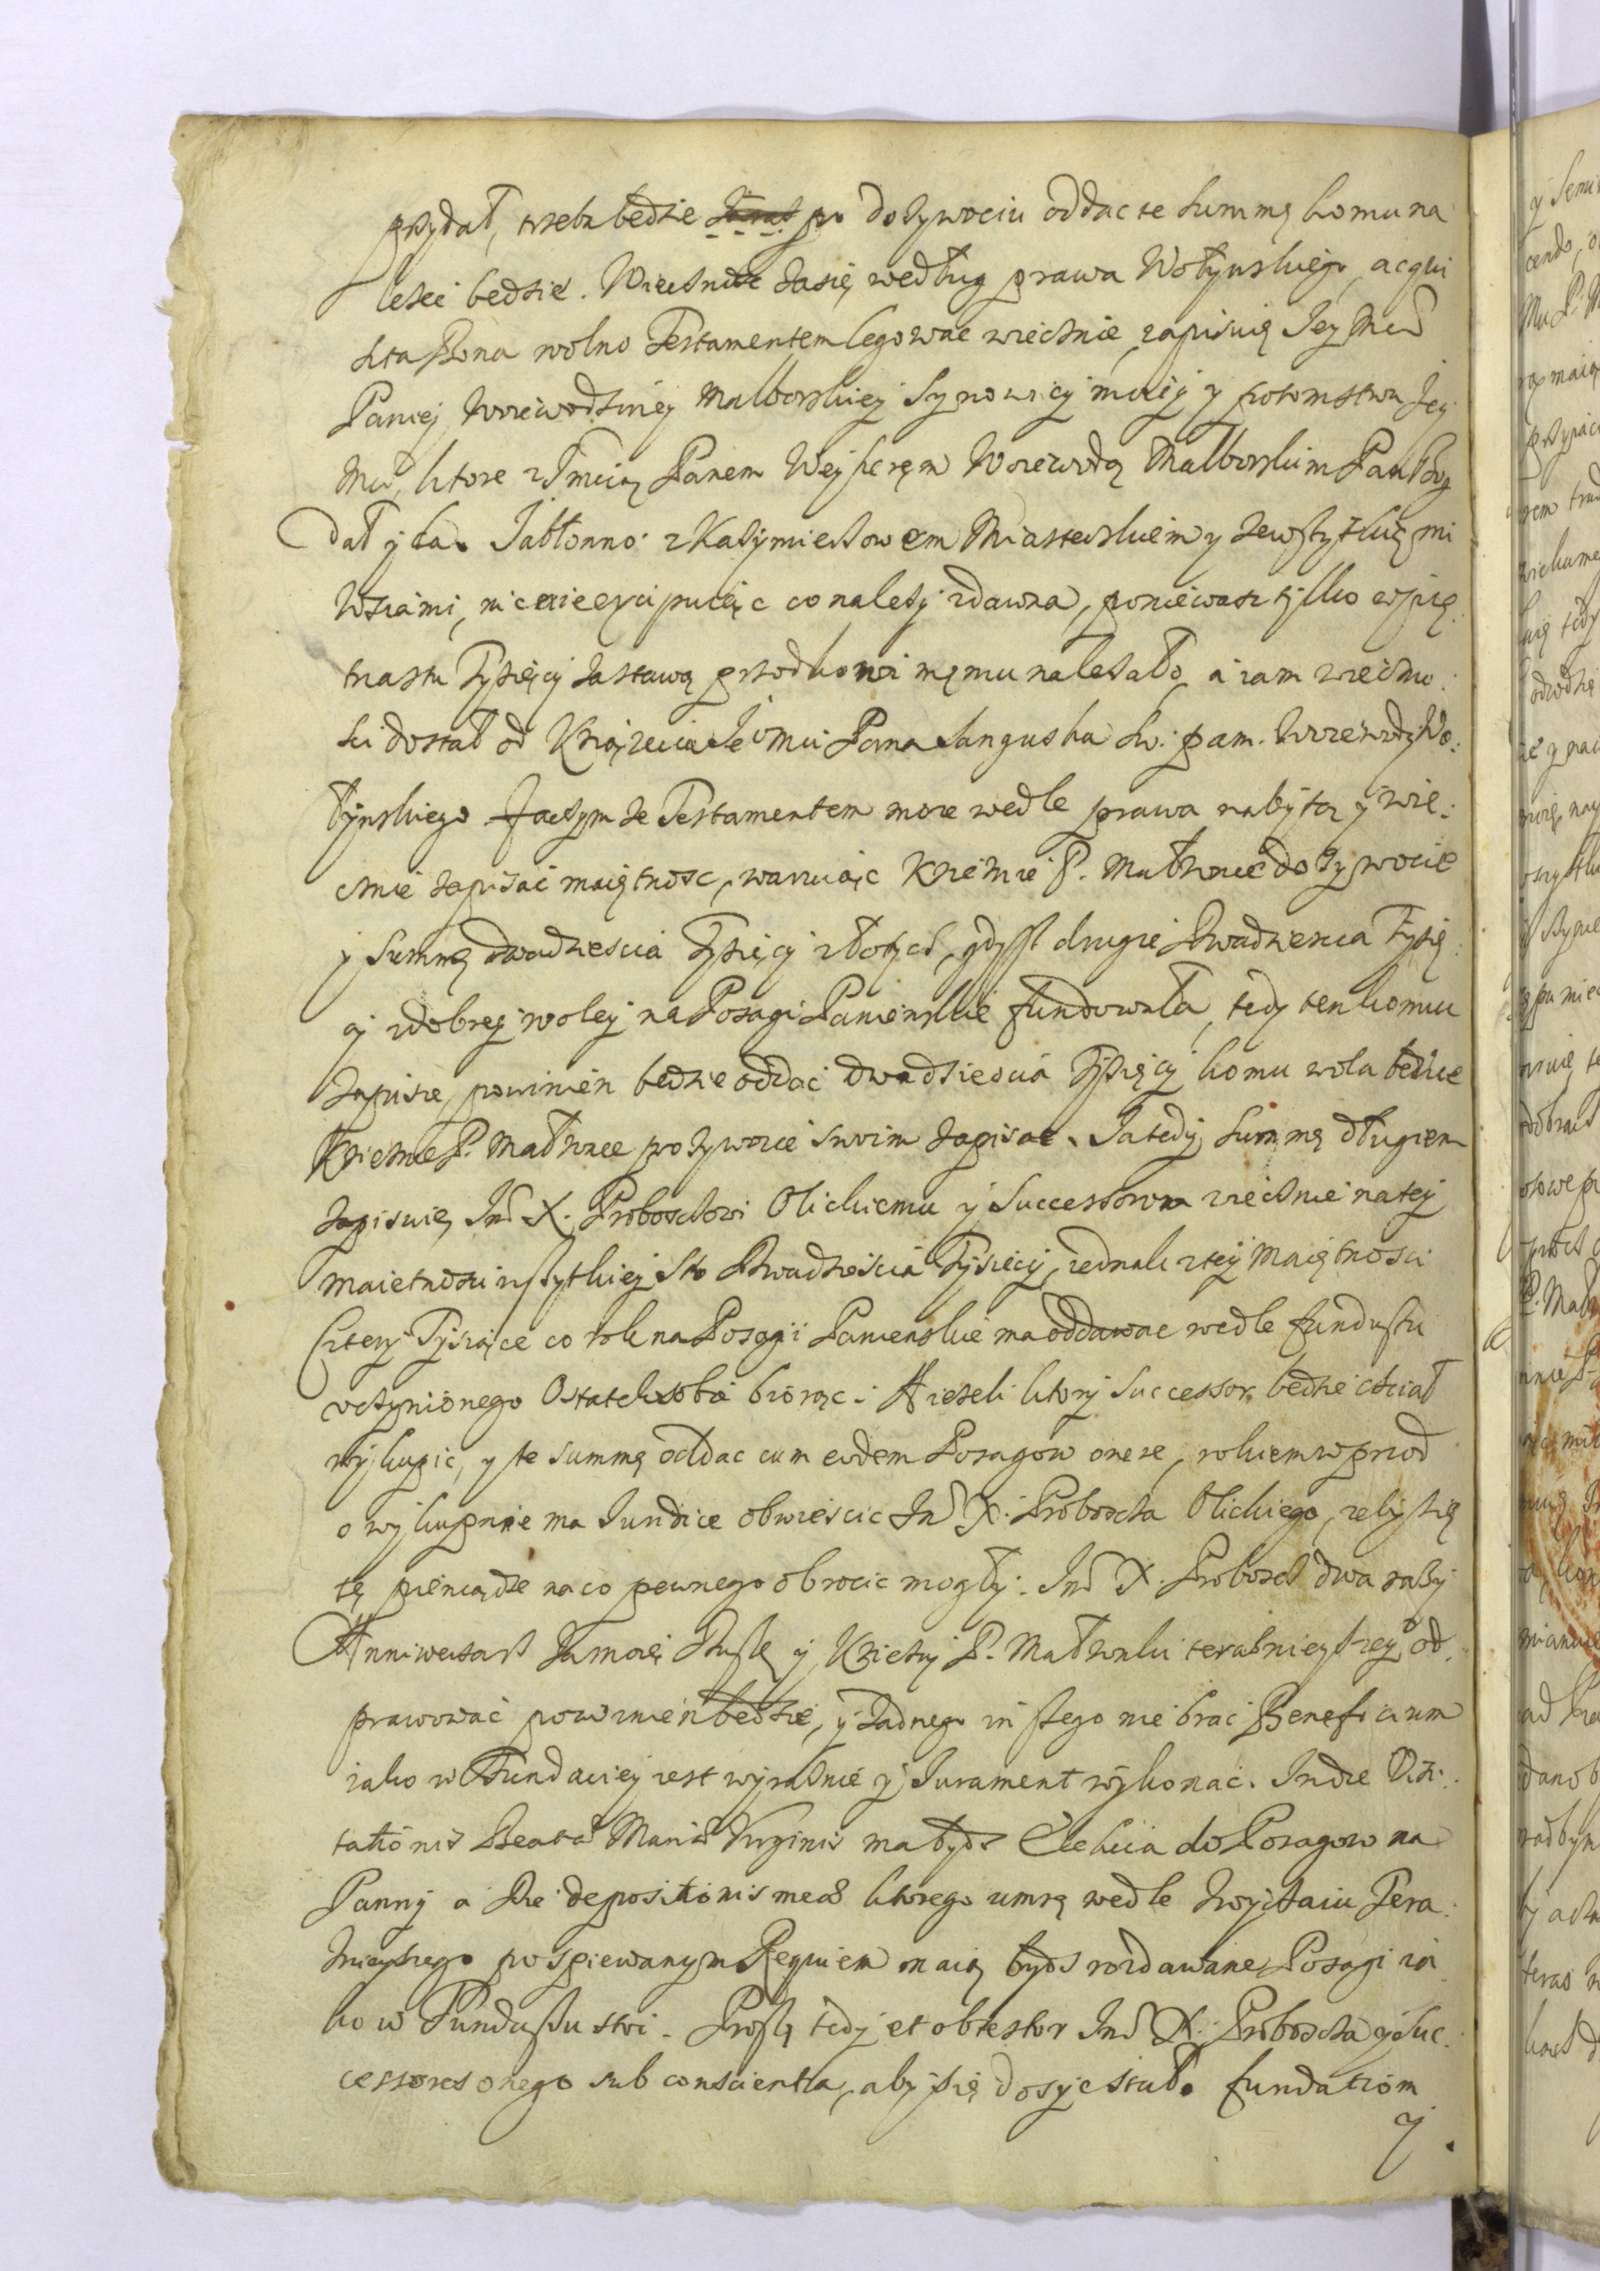 przydał, trzeba będzie po dożywociu oddac te summę komu na
lezeć będzie. Wiecznosc zasię według prawa Wołynskiego, acqui
sta Bona wolno Testamentem legowac wiecznie, zapisuię Jey Mci
Paniey Woiewodziney Malborskiey Synowicy moiey y potomstwu Jey
Mci, ktore z Jmcią Panem Wejheręm Woiewodą Malborskim Pan Bog
dał y da. Jabłonno z Kazimierzowem Miasteczkiem y ze wszytkięmi
Wsiami, nic nie excipuiąc co nalezy zdawna, poniewasz tylko w pię
tnastu Tysięcy zastawą przodkowi męmu nalezało, a iam wieczno:
sci dostał od Ksiązecia Jeomci Pana Sanguska s. pam. Woiewody Wo:
łynskiego. Zaczym ze Testamentem moze wedle prawa nabytą y wie:
cznie zapisać maiętnosc, waruiąc Xięznie P. Małzonce dozywocie
y Summę dwadziescia Tysięcy złotych, gdysz drugie Dwadziescia Tysię
cy z dobrey woley na Posagi Panienskie fundowała, tedy ten komu
zapisze, powinien będzie oddać dwadziescia Tysięcy komu wola będzie
Xięznie P. Małzonce po zywocie swoim zapisac. Ja tedy Summę długiem
zapisuię Jmci X. Proboszczowi Olickiemu y Successorom wiecznie na tey
maietnosci wszytkiey Sto Dwadziescia Tysięcy, iednak z tey Maiętnosci
Cztery Tysiące co rok na Posagi Panienskie ma oddawac wedle funduszu
uczynionego Ostatek sobie biorąc. A iezeli ktory Successor będzie chciał
wykupic, y te summę oddac cum eodem Posagow onere, rokiem wprzod
o wykupnie ma Juridice obwiescic Jmci X. Proboscza Olickiego, zeby się
te pieniądze na co pewnego obrocic mogły. Jmci X. Proboszcz dwa razy
Anniwersarz Za moię Duszę y Xięzny P. Małzonki teraznieyszey od:
prawować powinien będzie, y zadnego inszego nie brać Beneficium
iako w Fundaciey iest wyraznie y Jurament wykonać. In die Visi:
tationis Beatae Mariae Virginis ma bydz Elekcia do Posagow na
Panny a Die depositionis meae ktorego umrę wedle zwyczaiu Tera:
znieyszego po spiewanym Requiem maią bydz rozdawane Posagi ia
ko w Funduszu stoi. Proszę tedy et obtestor Jmci X. Proboscza y Suc:
cessores onego sub conscientia, aby się dosyc stało fundation
y